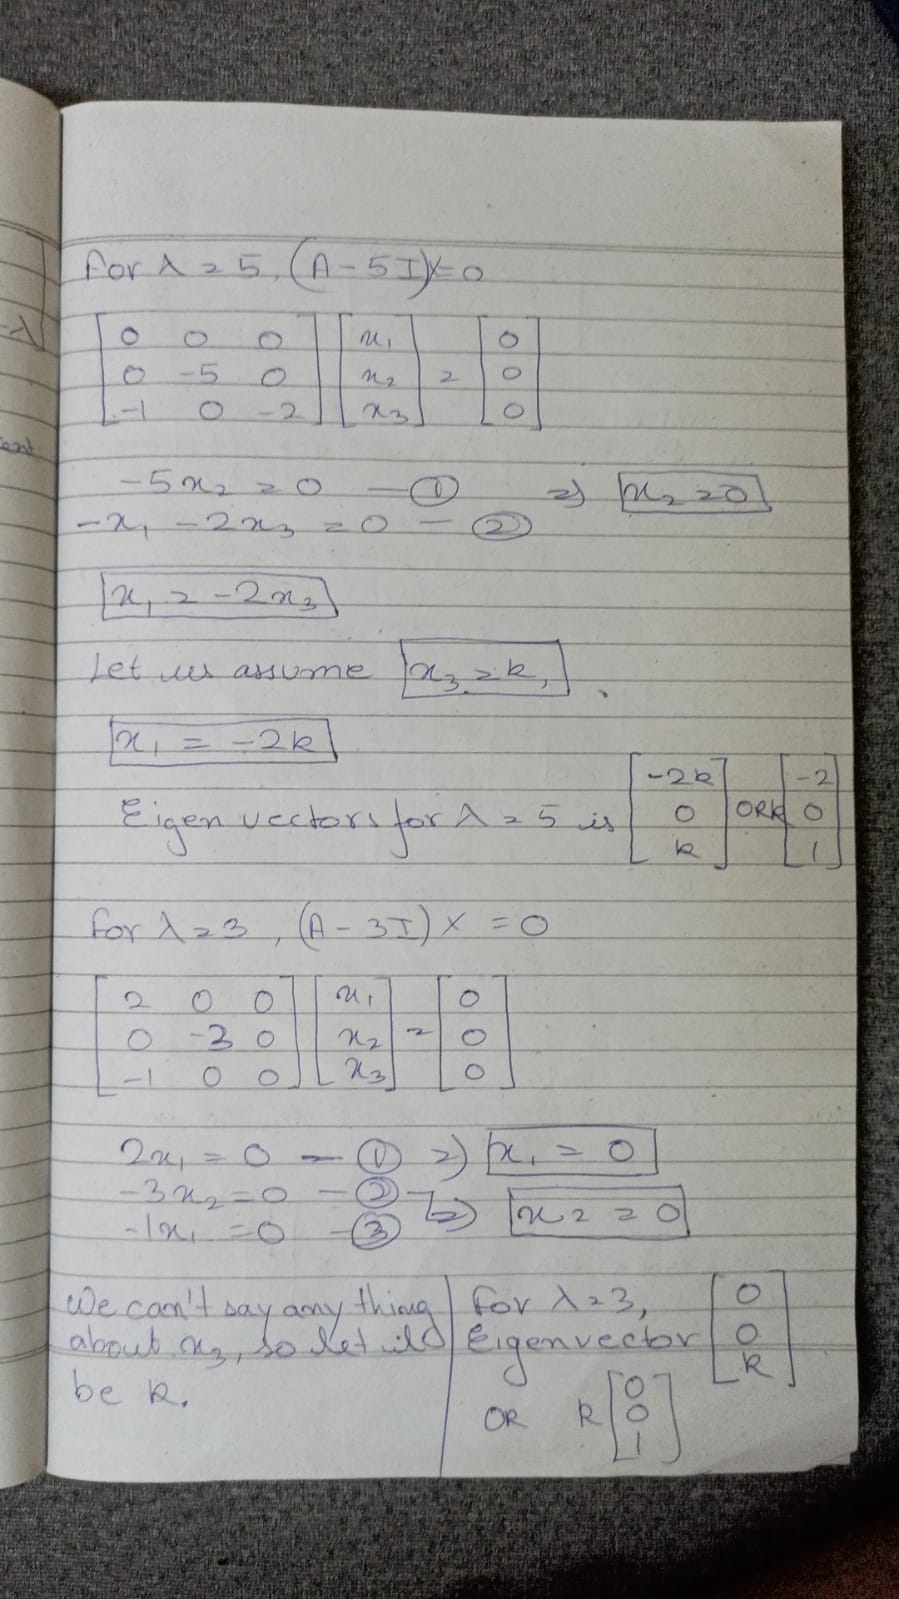 For λ = 5, (A - 5I)X = 0
[0 0 0] [x₁] [0]
[0 -5 0] [x₂] = [0]
[-1 0 -2] [x₃] [0]
-5x₂ = 0 — ① ⇒ x₂ = 0
-x₁ - 2x₃ = 0 — ②
x₁ = -2x₃
Let us assume x₃ = k,
x₁ = -2k
Eigen vectors for λ = 5 is [-2k 0 k] OR k [-2 0 1]
For λ = 3, (A - 3I) X = 0
[2 0 0] [x₁] [0]
[0 -3 0] [x₂] = [0]
[-1 0 0] [x₃] [0]
2x₁ = 0 — ① ⇒ x₁ = 0
-3x₂ = 0 — ② ⇒ x₂ = 0
-1x₁ = 0 — ③
We can't say any thing
about x₃, so let
be k.
For λ = 3,
Eigenvector [0 0 k]
OR k [0 0 1]
-λ